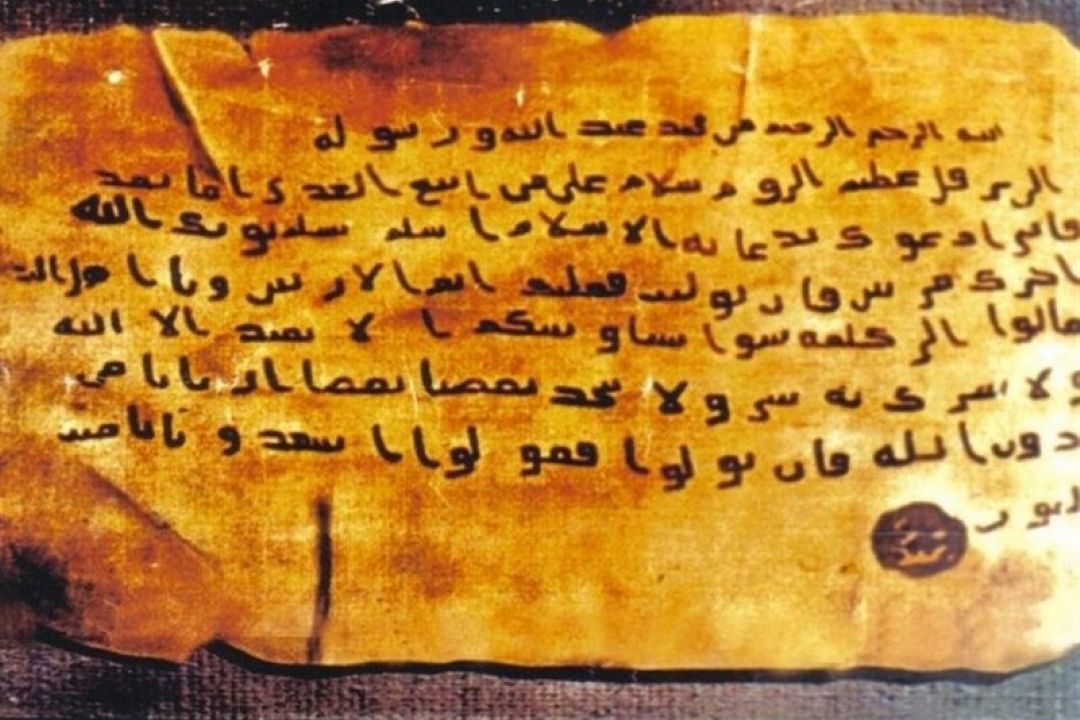 الرحمن الرحيم من محمد عبد الله ورسوله
الى هرقل عظيم الروم سلام على من اتبع الهدى اما بعد
فانى ادعوك بدعاية الاسلام اسلم تسلم يوتك الله
اجرك مرتين فان توليت فعليك اثم الاريسين ويا اهل
تعالوا الى كلمة سوا بيننا وبينكم ا لا نعبد الا الله
ولا نشرك به ولا يتخذ بعضنا بعضا اربابا من
دون الله فان تولوا فقولوا اشهدو بانا